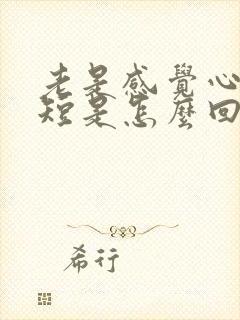 老是感覺心
短是怎麼回
希行